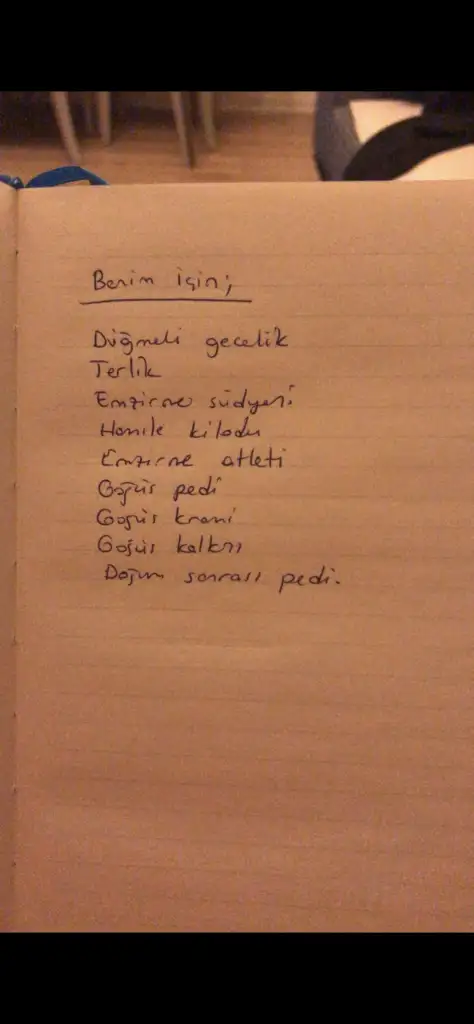 Benim için;
Düğmeli gecelik
Terlik
Emzirme südyeni
Hamile kilodu
Emzirme atleti
Göğüs pedi
Göğüs kremi
Göğüs kalkanı
Doğum sonrası pedi.